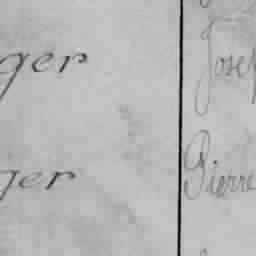 ger Josep
ger Pierre